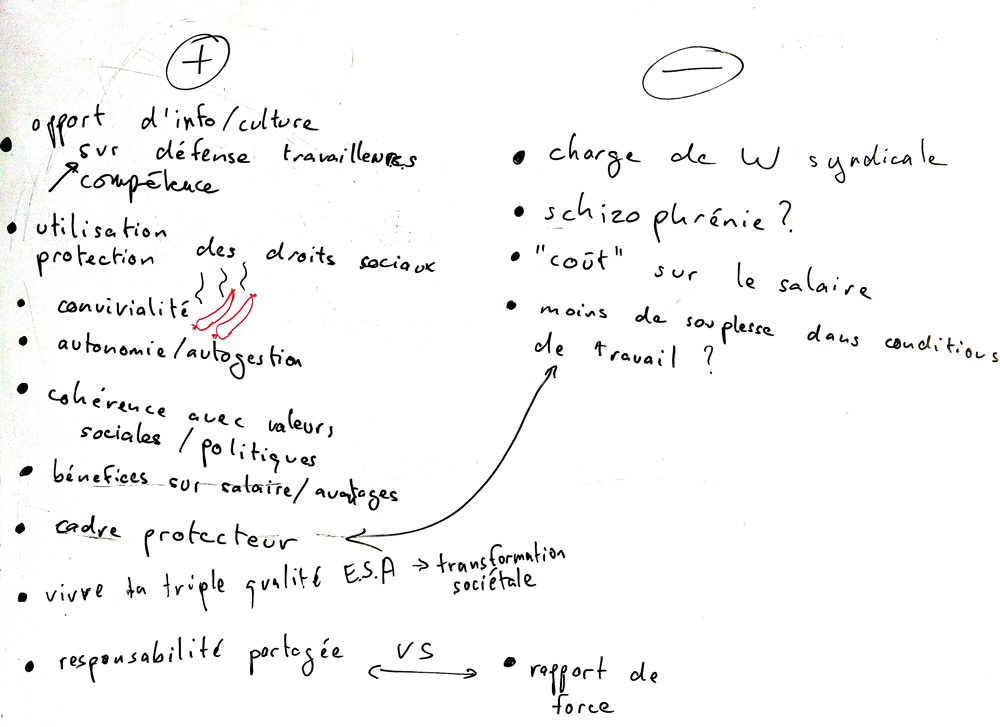 +
apport d'info/culture
sur défense travailleurs
↗ compétence
utilisation
protection des droits sociaux
convivialité
autonomie/autogestion
cohérence avec valeurs
sociales / politiques
bénefices sur salaire/avantages
cadre protecteur
vivre ta triple qualité E.S.A → transformation
sociétale
responsabilité partagée
VS
−
charge de W syndicale
schizophrénie ?
"coût" sur le salaire
moins de souplesse dans conditions
de travail ?
rapport de
force